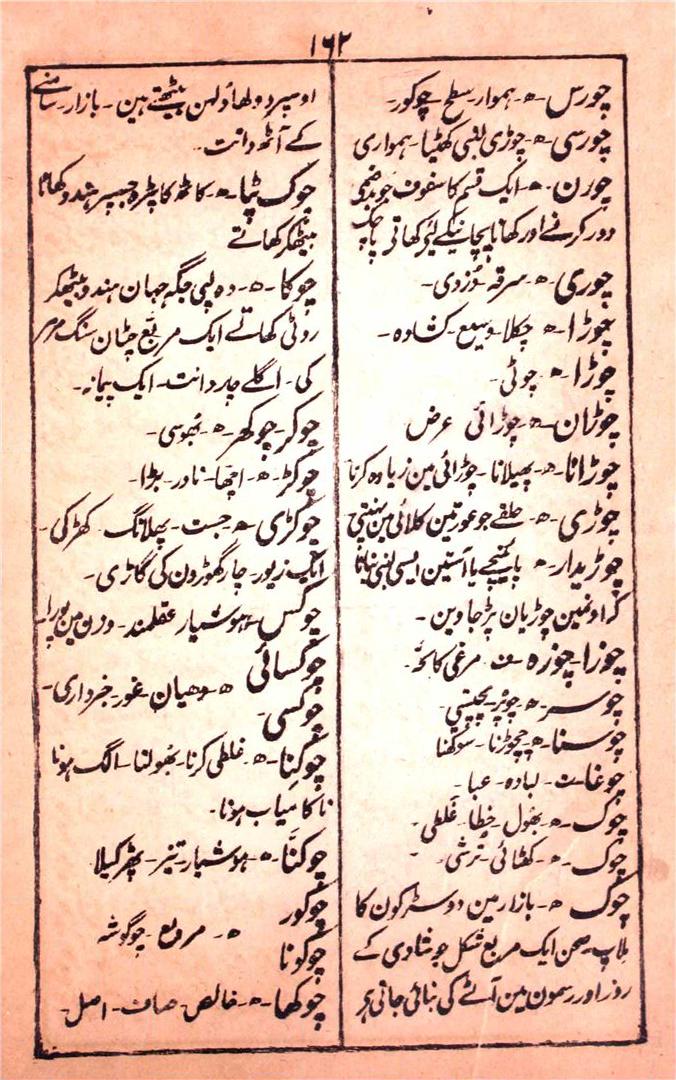 ۱۶۲
چورس - ھ - ہموار - سطح - چوکور -
چورسی - ھ - چوڑی لنبی کھٹیا - ہمواری
چورن - ھ - ایک قسم کا سفوف جو بدہضمی
دور کرنے اور کھانا پچانیکے لیئر کھاتی پاچک
چوری - ھ - سرقہ - دُزدی -
چوڑا - ھ چکلا - وسیع - کشادہ -
چوڑا - ھ - چوٹی -
چوڑان - ھ - چوڑائی عرض
چوڑانا - ھ - پھیلانا - چوڑائی مین زیادہ کرنا
چوڑی - ھ - حلقے جو عورتین کلائی مین پہنتی
چوڑیدار - ھ - پائنچے یا آستین ایسی لنبی بنانا
کہ اونمین چوڑیان پڑ جاوین -
چوزا - چوزہ - ف مرغی کا بچہ -
چوسر - ھ - چوپڑ - پچیسی -
چوسنا - ھ - چچوڑنا - سوکھنا
چوغا - ت - لبادہ - عبا -
چوک - ھ - بھُول - خطا - غلطی -
چوک - ھ - کھٹائی - ترشی -
چوک - ھ - بازار مین دو سٹرکون کا
ملاپ - صحن ایک مربع شکل جو شادی کے
روز اور رسمون مین آٹے کی بنائی جاتی ہر
اوسپر دولھا دُلہن بیٹھتے ہین - بازار - سامنے
کے آٹھ دانت -
چوک پٹا - ھ - کاٹھ کا پٹرہ جسپر ہندو کھانا
بیٹھکر کھاتے
چوکا - ھ - وہ لپی جگہ جہان ہندو بیٹھکر
روٹی کھاتے ایک مربّع چٹان سنگ مرمر
کی - اگلے چار دانت - ایک پیمانہ -
چوکر - چوکھر - ھ - بھُوسی -
چوکڑ - ھ - اچھا - نادر - بڑا -
چوکڑی - ھ - جست - پھلانگ - کھڑکی -
ایک زیور - چار گھوڑون کی گاڑی -
چوکس - ھ - ہوشیار عقلمند - وزن مین پورا -
چوکسائی
ھ - دھیان - غور - خبرداری -
چوکسی -
چوکنا - ھ - غلطی کرنا - بھُولنا - الگ ہونا
ناکامیاب ہونا -
چوکنّا - ھ - ہوشیار - تیز - پھڑکیلا
چوکور
ھ - مربع - چوگوشہ
چوکونا
چوکھا - ھ - خالص - صاف - اصل -